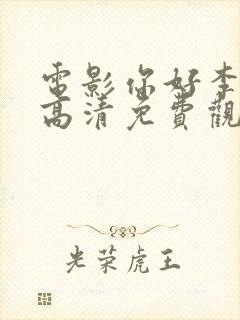 電影你好李
高清免費觀
光荣虎王